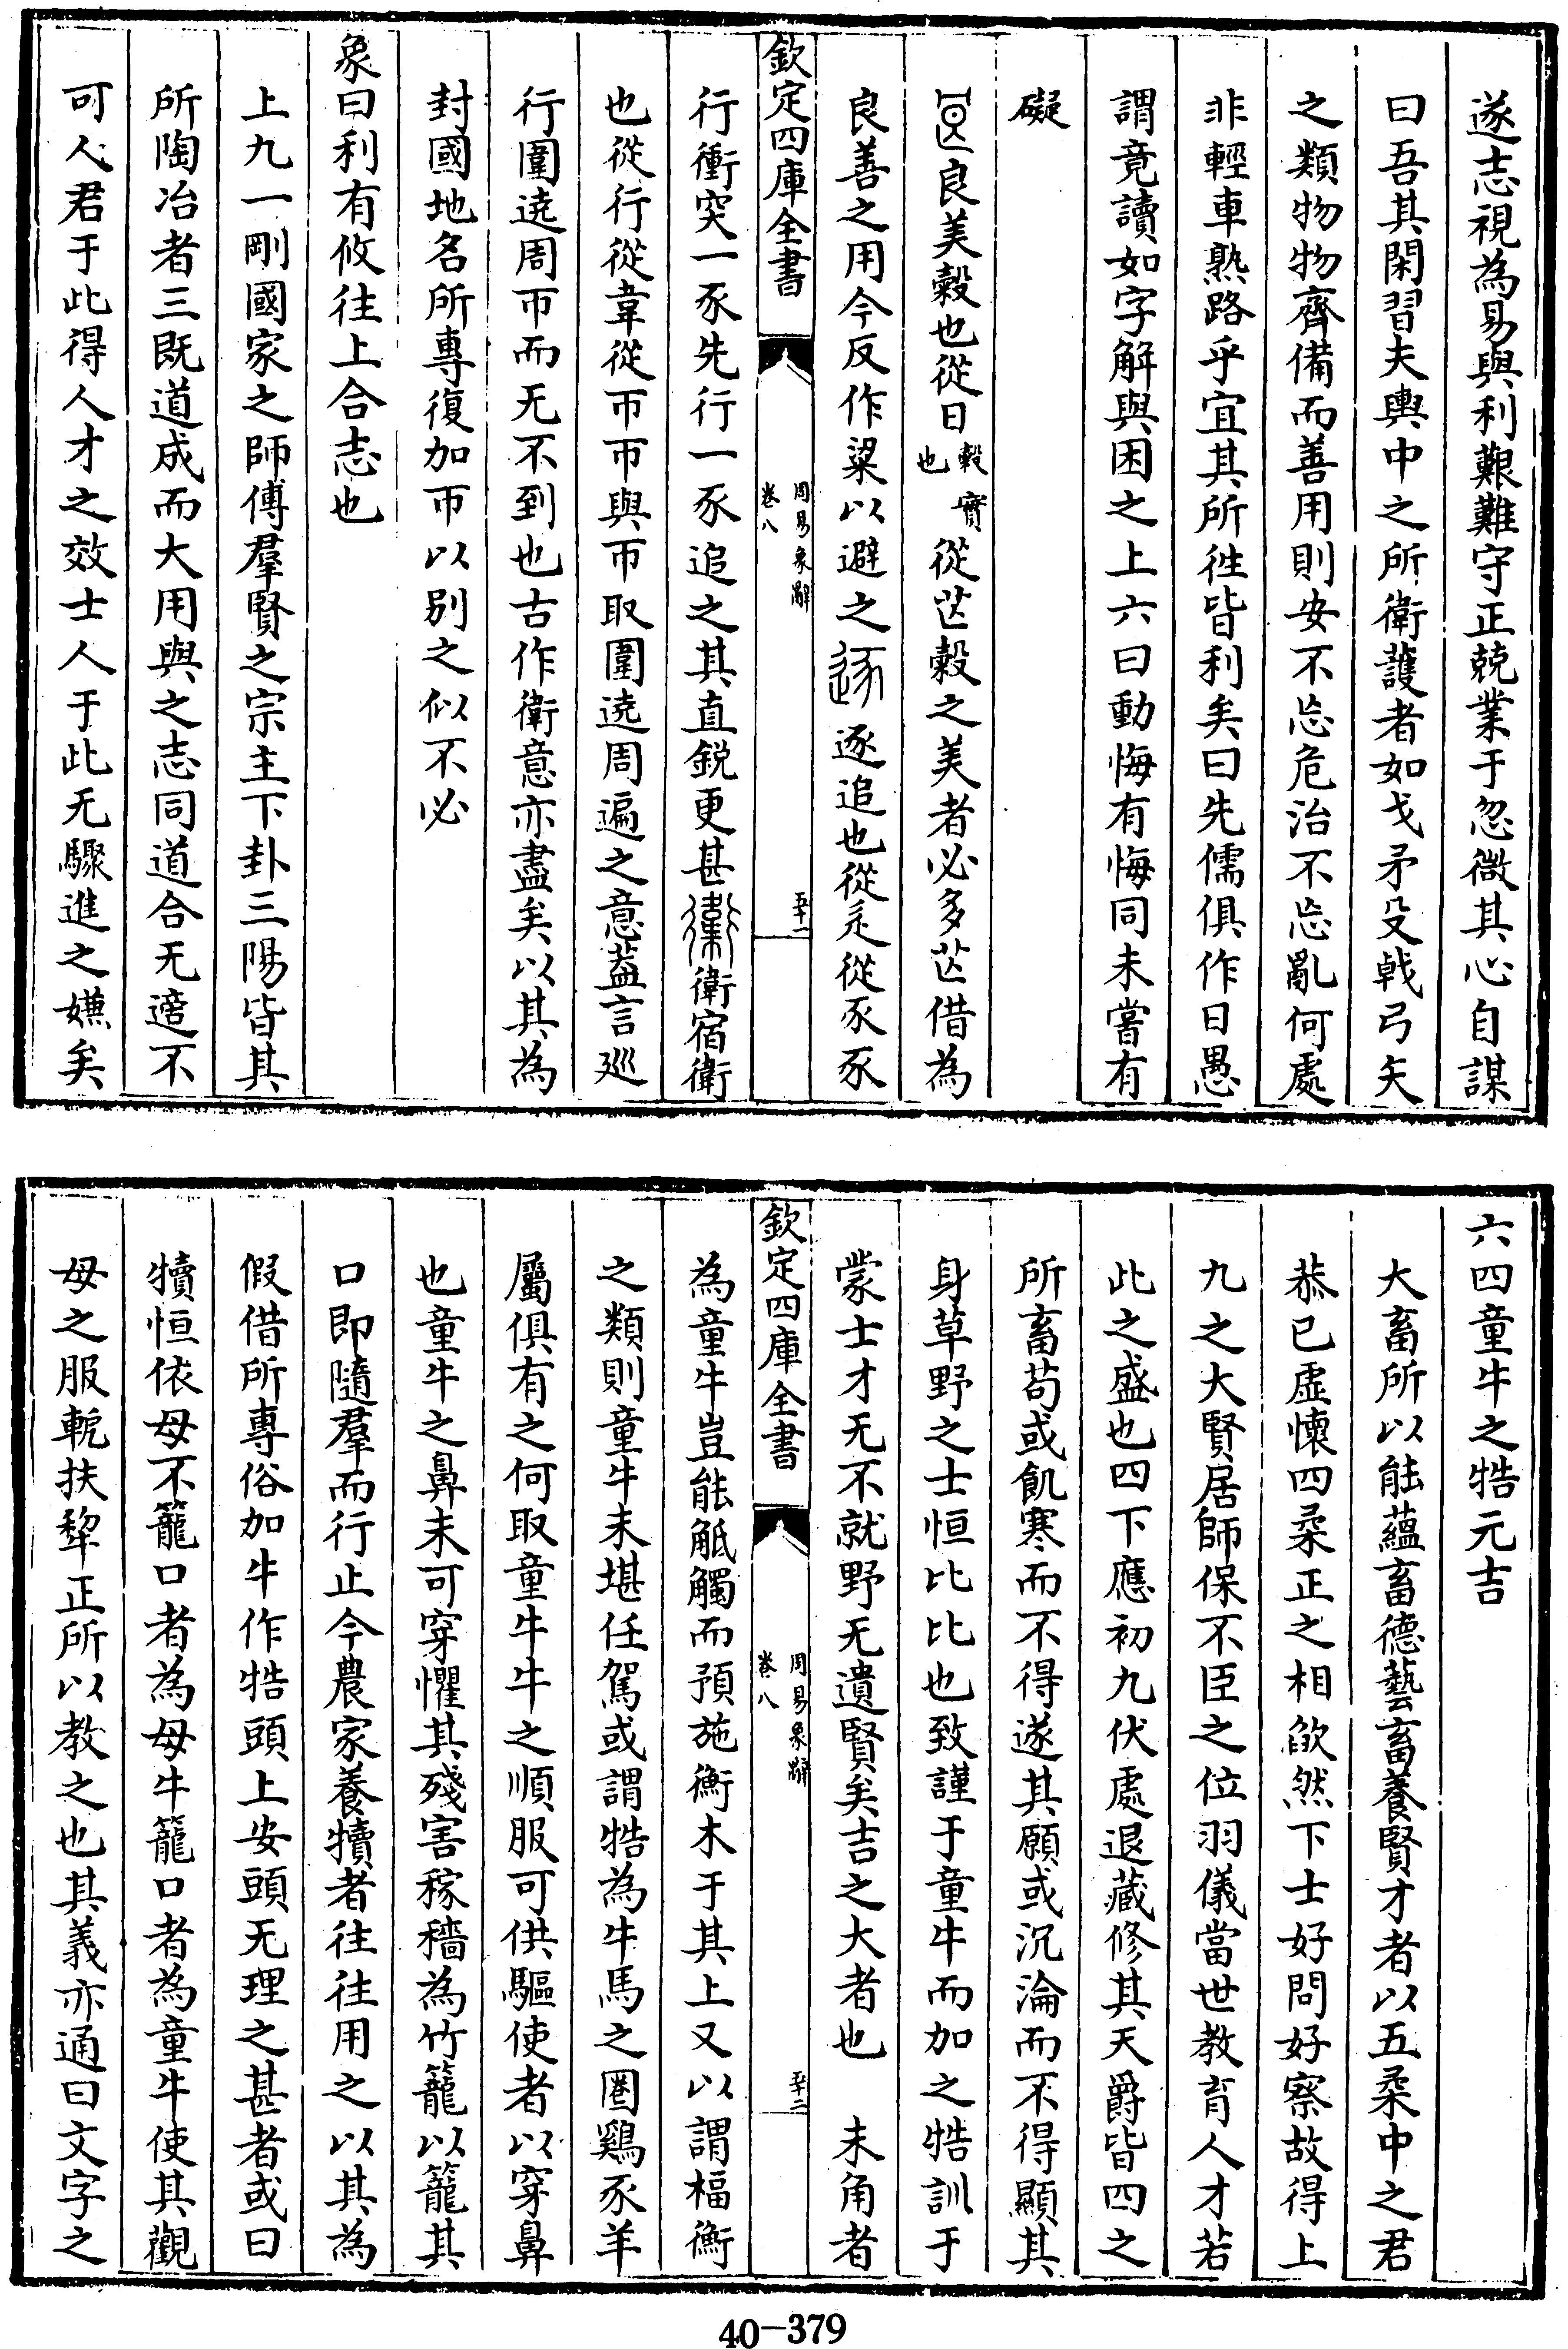 遂志視為易與利艱難守正兢業于忽微其心自謀
曰吾其閑習夫輿中之所衛護者如戈矛殳戟弓矢
之類物物齊備而善用則安不忘危治不忘亂何處
非輕車熟路乎宜其所徃皆利矣曰先儒俱作日愚
謂竟讀如字解與困之上六曰動悔有悔同未嘗有
礙
良美穀也從日穀實也從亾穀之美者必多亾借為
良善之用今反作粱以避之逐追也從辵從豕豕
欽定四庫全書
周易象辭
卷八
五十一
行衝突一豕先行一豕追之其直銳更甚衛宿衛
也從行從韋從帀帀與帀取圍遶周遍之意葢言廵
行圍遶周帀而无不到也古作衛意亦盡矣以其為
封國地名所專復加帀以别之似不必
象曰利有攸往上合志也
上九一剛國家之師傅羣賢之宗主下卦三陽皆其
所陶冶者三既道成而大用與之志同道合无遮不
可人君于此得人才之效士人于此无驟進之嫌矣
六四童牛之牿元吉
大畜所以能蘊畜德藝畜養賢才者以五柔中之君
恭已虛懷四柔正之相欿然下士好問好察故得上
九之大賢居師保不臣之位羽儀當世教育人才若
此之盛也四下應初九伏處退藏修其天爵皆四之
所畜苟或飢寒而不得遂其願或沉淪而不得顯其
身草野之士恒比比也致謹于童牛而加之牿訓于
蒙士才无不就野无遺賢矣吉之大者也　未角者
欽定四庫全書
周易象辭
卷八
五十二
為童牛豈能觝觸而預施衡木于其上又以謂楅衡
之類則童牛未堪任駕或謂牿為牛馬之圈鷄豕羊
屬俱有之何取童牛牛之順服可供驅使者以穿鼻
也童牛之鼻未可穿懼其殘害稼穡為竹籠以籠其
口即隨羣而行止今農家養犢者往往用之以其為
假借所專俗加牛作牿頭上安頭无理之甚者或曰
犢恒依母不籠口者為母牛籠口者為童牛使其觀
母之服軛扶犂正所以教之也其義亦通曰文字之
40-379